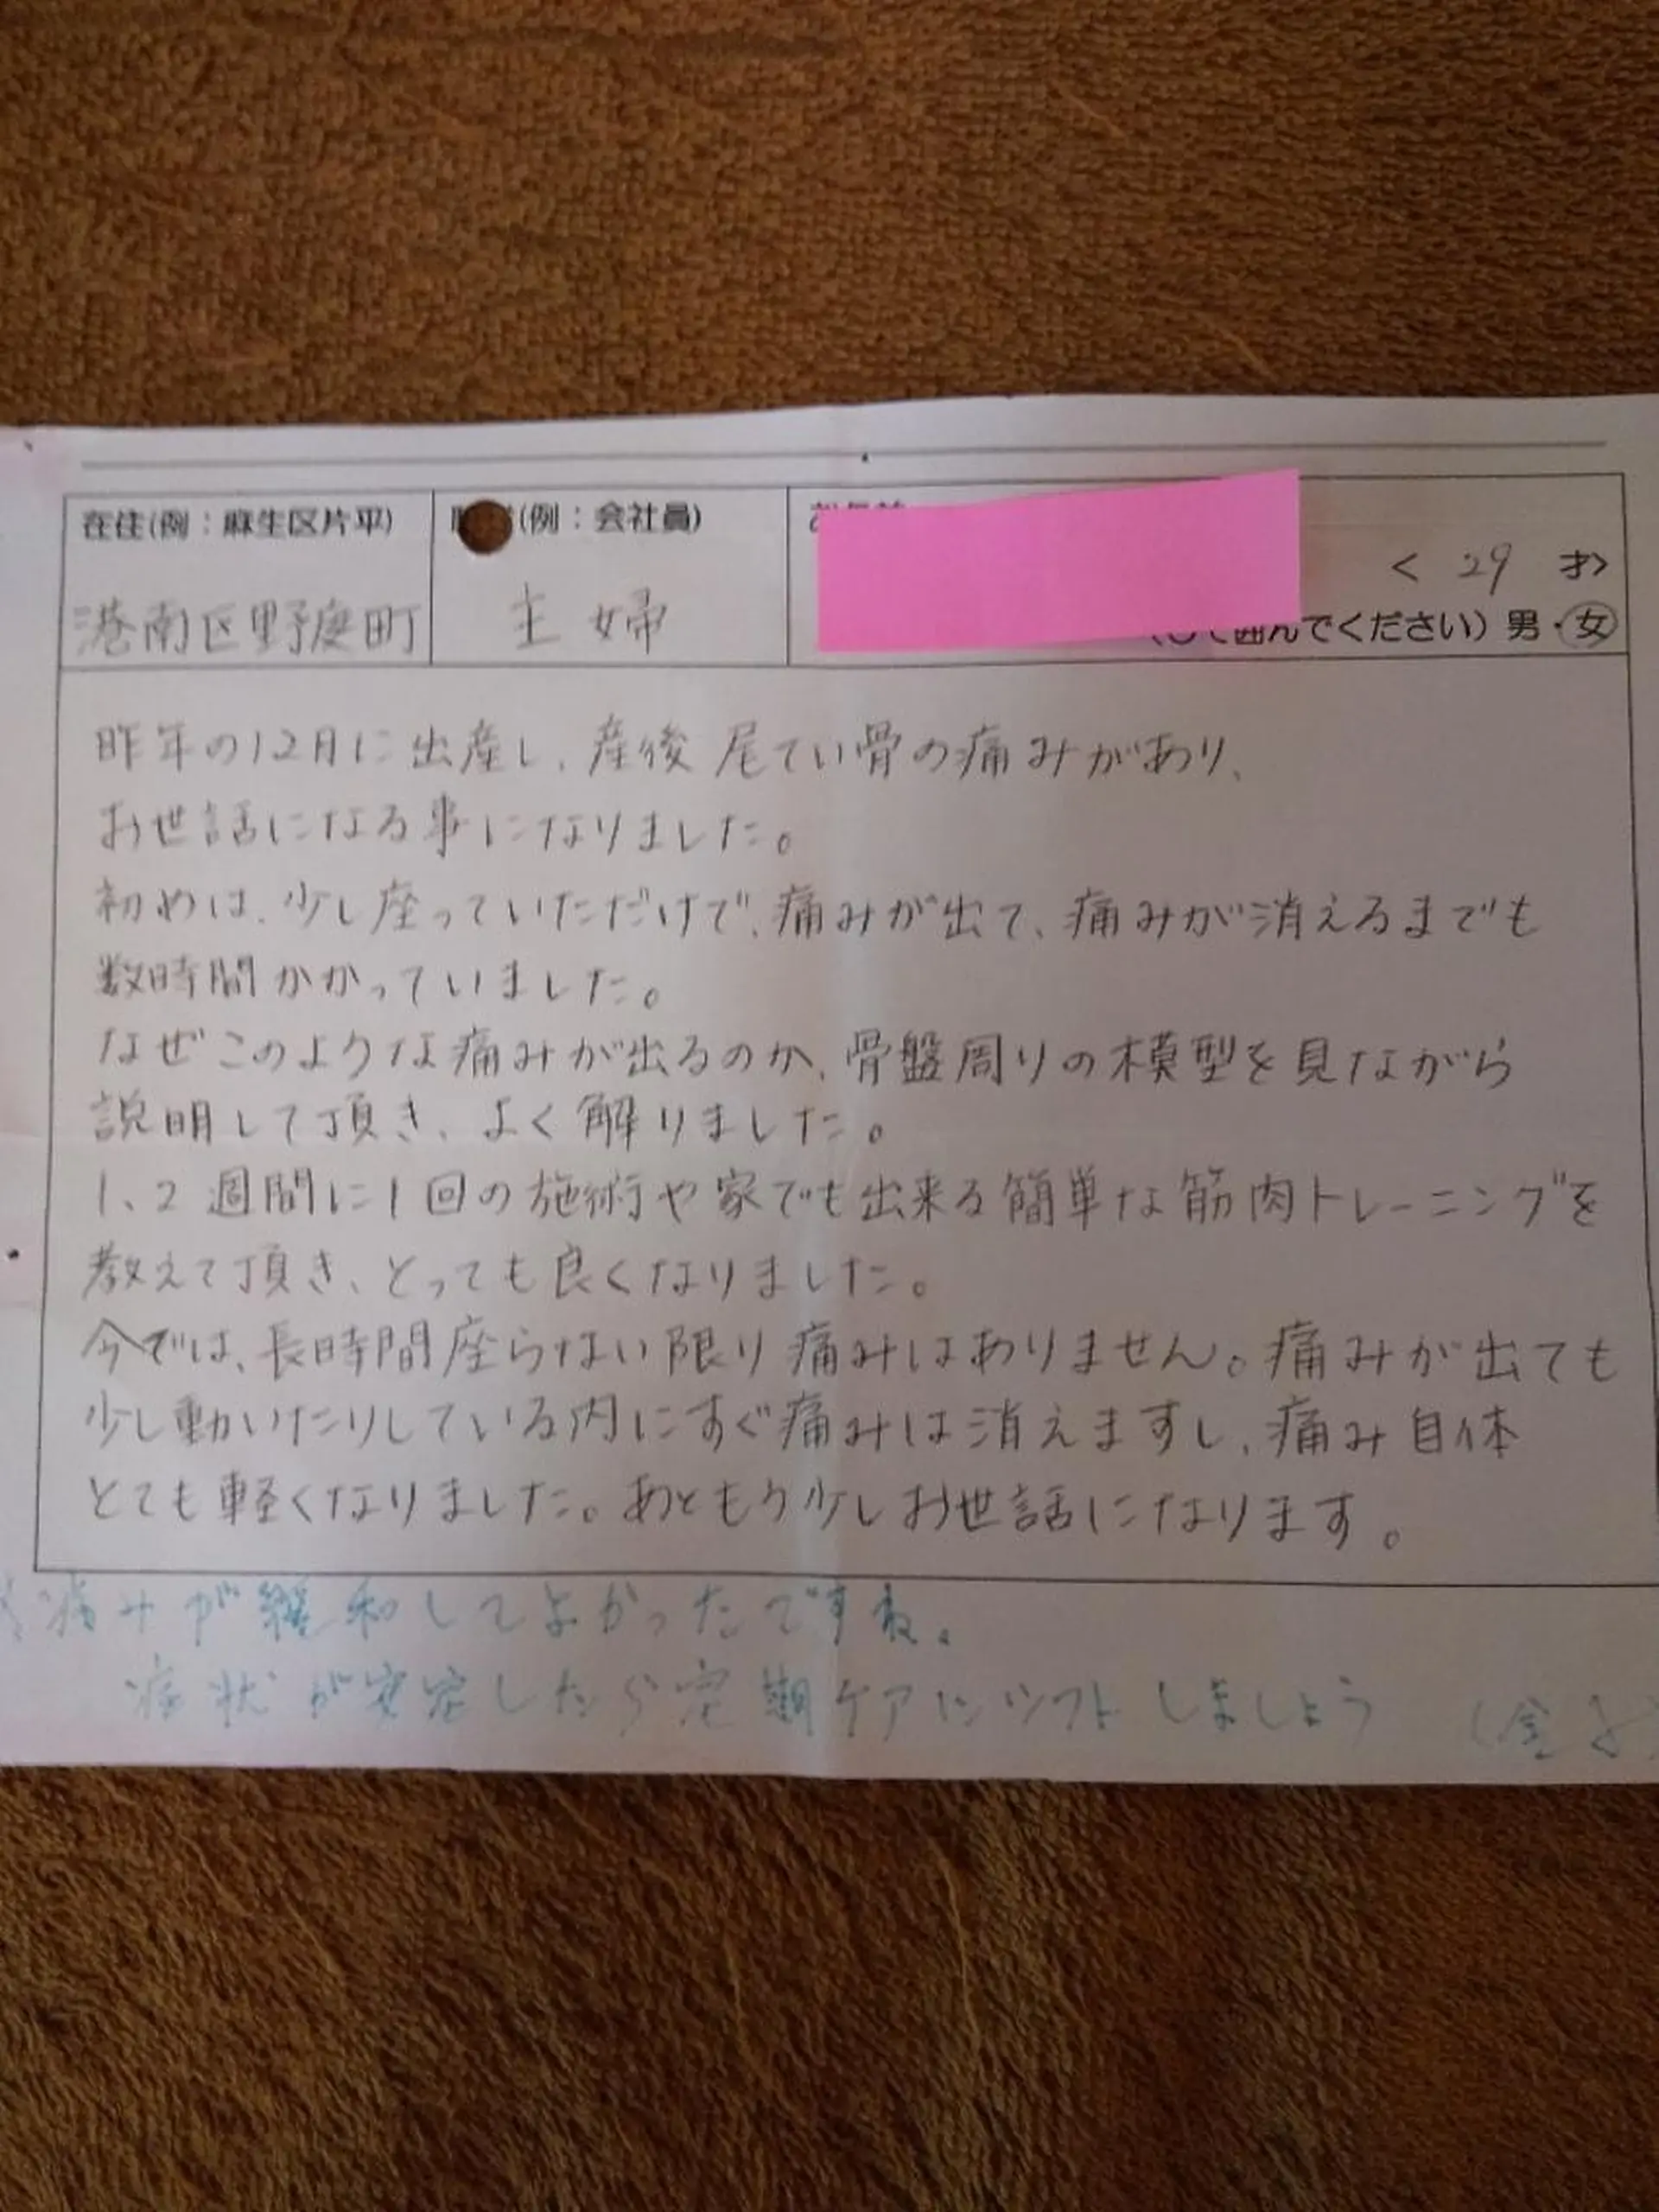 在住(例：麻生区片平)
(例：会社員)
港南区野庭町
主婦
< 29 才>
囲んでください) 男・女
昨年の12月に出産し、産後 尾てい骨の痛みがあり、
お世話になる事になりました。
初めは、少し座っていただけで、痛みが出て、痛みが消えるまでも
数時間かかっていました。
なぜこのような痛みが出るのか、骨盤周りの模型を見ながら
説明して頂き、よく解りました。
1、2週間に1回の施術や家でも出来る簡単な筋肉トレーニングを
教えて頂き、とっても良くなりました。
今では、長時間座らない限り痛みはありません。痛みが出ても
少し動いたりしている内にすぐ痛みは消えますし、痛み自体
とても軽くなりました。あともう少しお世話になります。
痛みが緩和してよかったですね。
症状が安定したら定期ケアにシフトしましょう (金子